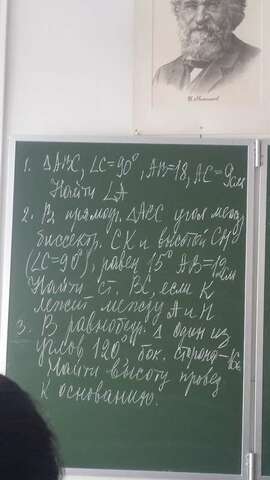 1. ΔABC, ∠C=90°, AB=18, AC=9см
Найти ∠A
2. В прямоуг. ΔABC угол между
биссектр. CK и высотой CH
(∠C=90°), равен 15° AB=12см
Найти ст. BC, если K
лежит между A и H
3. В равнобедр. Δ один из
углов 120°, бок. сторона–16см
Найти высоту провед
к основанию.